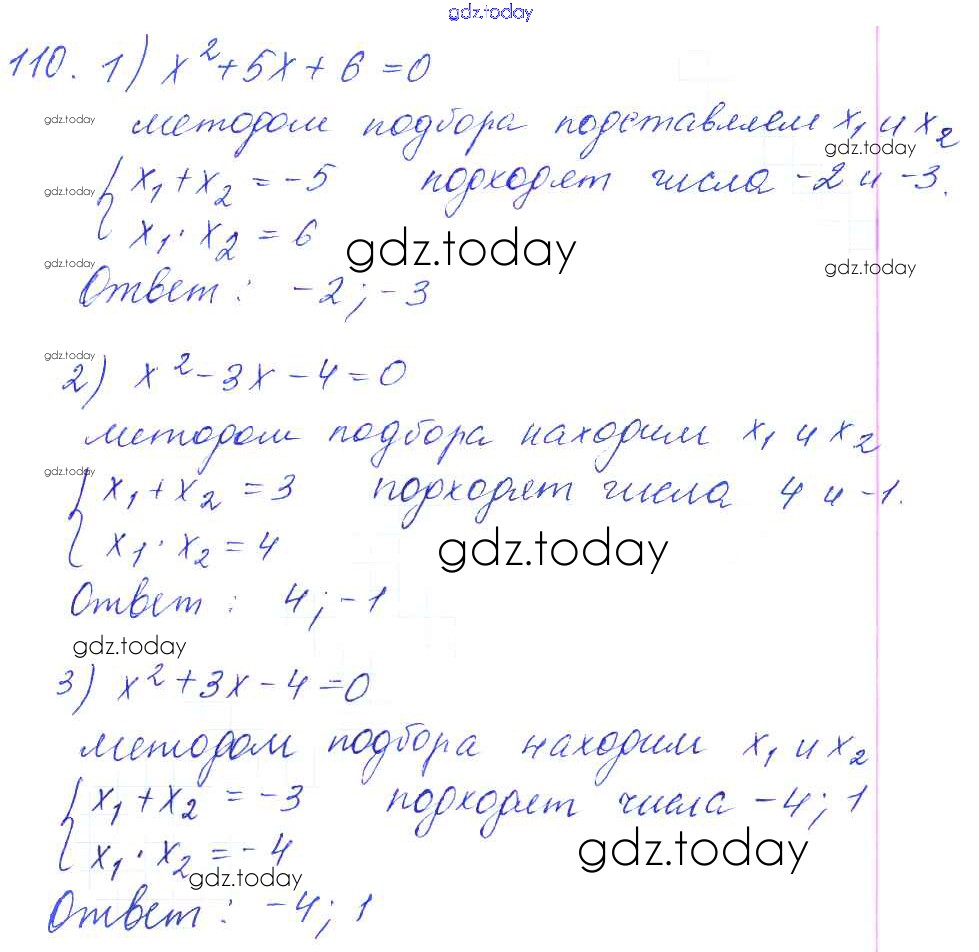 gdz.today
110. 1) x²+5x+6=0
gdz.today
методом подбора подставляем x₁ и x₂
gdz.today
gdz.today
{ x₁+x₂=-5 подходят числа -2 и -3.
x₁·x₂=6
gdz.today
gdz.today
gdz.today
Ответ: -2;-3
gdz.today
2) x²-3x-4=0
методом подбора находим x₁ и x₂
gdz.today
{ x₁+x₂=3 подходят числа 4 и -1.
x₁·x₂=4
gdz.today
Ответ: 4;-1
gdz.today
3) x²+3x-4=0
методом подбора находим x₁ и x₂
{ x₁+x₂=-3 подходят числа -4;1
x₁·x₂=-4
gdz.today
gdz.today
Ответ: -4;1